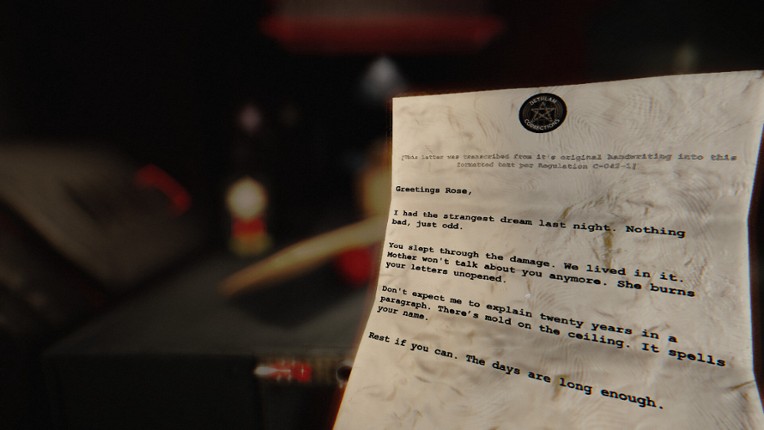 DETULAH
CORRECTIONS
[This letter was transcribed from it's original handwriting into this
formatted text per Regulation C-042-1]
Greetings Rose,
I had the strangest dream last night. Nothing
bad, just odd.
You slept through the damage. We lived in it.
Mother won't talk about you anymore. She burns
your letters unopened.
Don't expect me to explain twenty years in a
paragraph. There's mold on the ceiling. It spells
your name.
Rest if you can. The days are long enough.